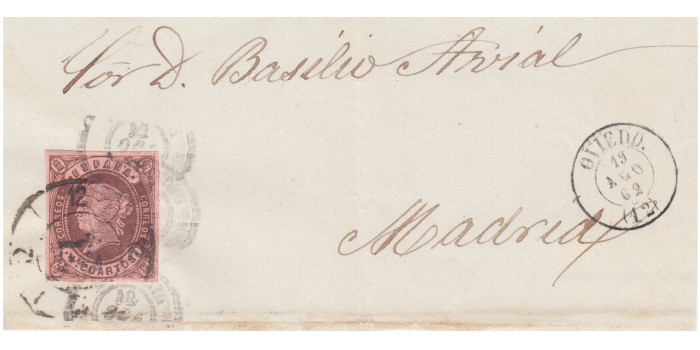 Sor D. Basilio Avial
ESPAÑA
CORREOS
CORREOS
CUARTOS
12
2
OVIEDO.
19
AGO
62
(12)
Madrid